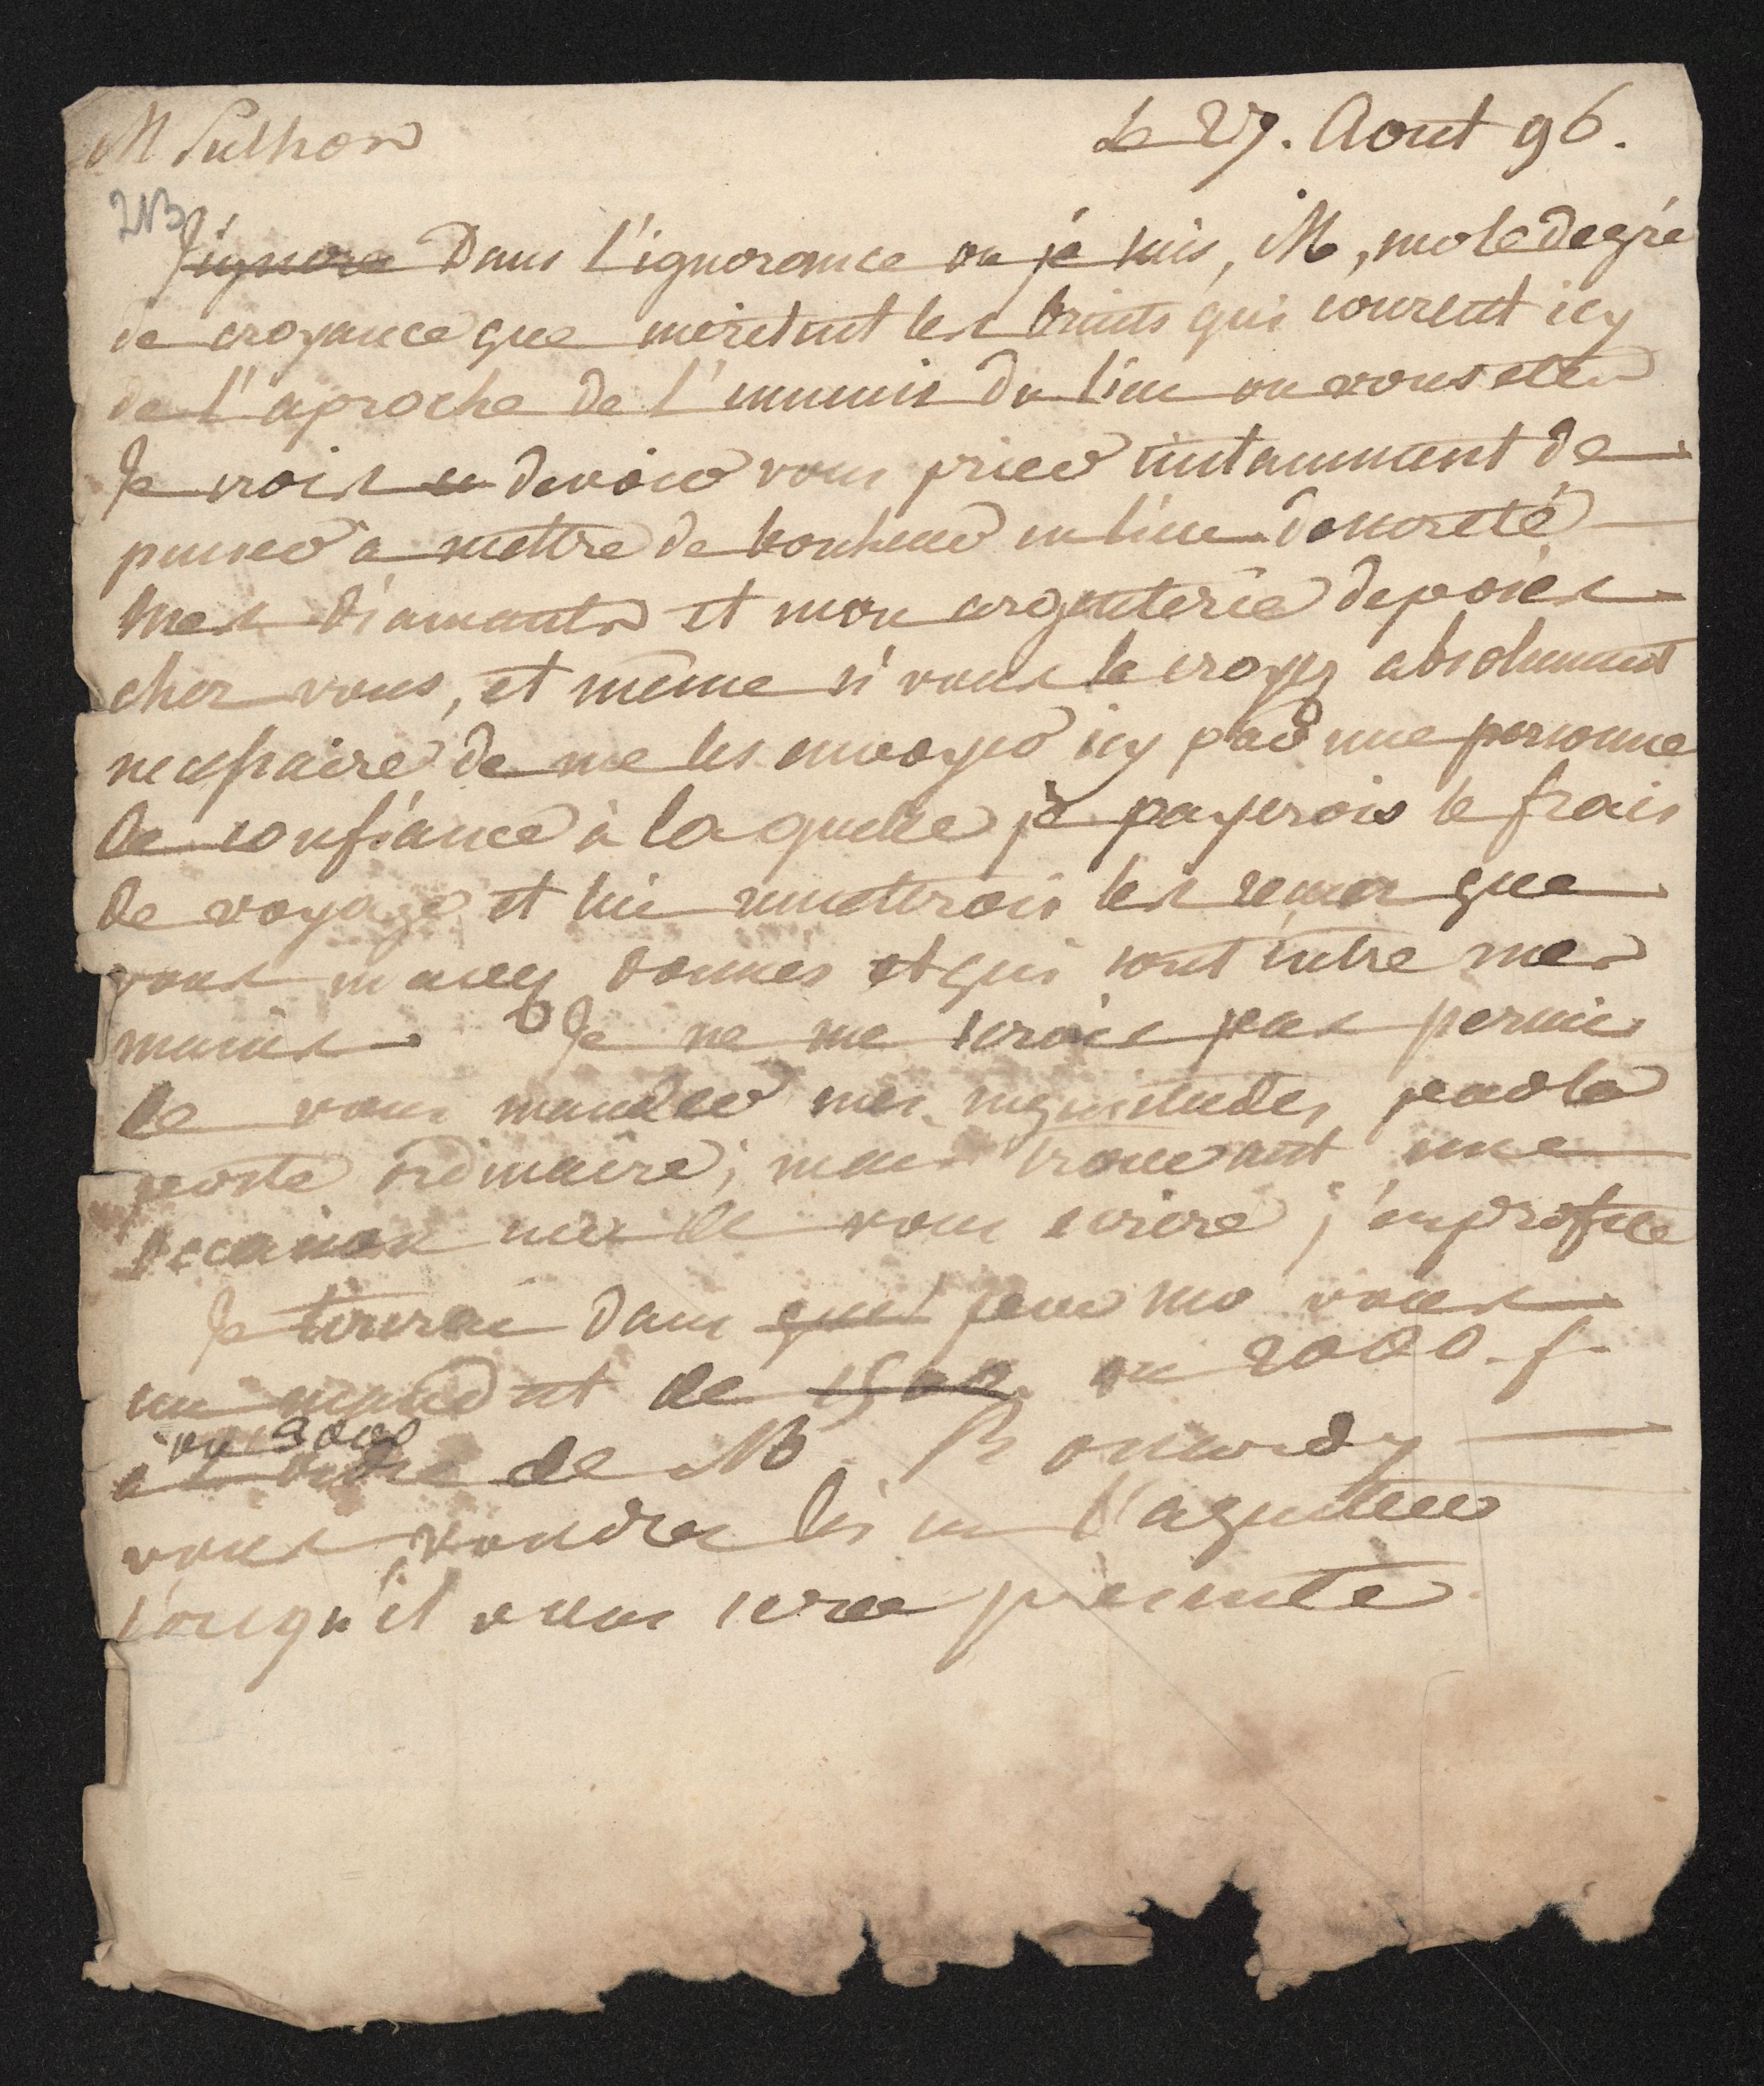 M Sulhon
Le 27. Aout 96.
213
J'ignore Dans l'ignorance ou je suis, M, sur le degré
de croyance que meritent les bruits qui courent icy
de l'aproche de l'ennemis du lieu ou vous etes
Je crois devoir vous prier instamment de
penser a mettre de bonheur en lieu de sureté
mes diamants et mon argenterie deposés
chez vous, et même si vous le croyez absolument
necessaire de me les envoyer icy par une personne
de confiance à la quelle je payerois le frais
de voyage et lui remetterois les recus que
vous m'avez donnes et qui sont entre mes
mains. Je ne me serois pas permis
de vous mander mes inquietudes par la
poste ordinaire; mais trouvant une
occasion sure de vous ecrire, j'en profite
Je tirerai dans quel peu sur vous
un mandat de 1500 ou 2000. f
ou 3000
a l'ordre de M.
vous voudres bien l'aquitter
lorsqu'il vous sera presenté.